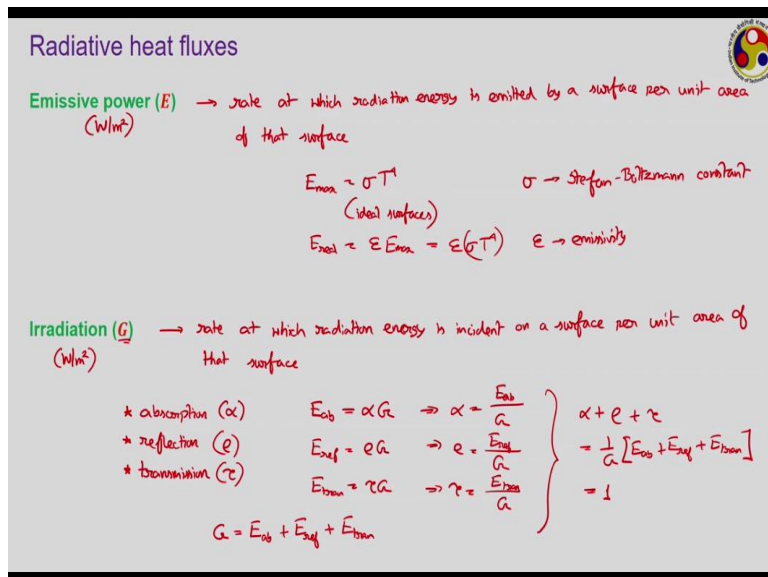 Radiative heat fluxes
Emissive power (E) → rate at which radiation energy is emitted by a surface per unit area
(W/m²) of that surface
E_max = σT⁴ σ → Stefan-Boltzmann constant
(ideal surfaces)
E_real = ε E_max = ε(σT⁴) ε → emissivity
Irradiation (G) → rate at which radiation energy is incident on a surface per unit area of
(W/m²) that surface
* absorption (α) E_ab = αG ⇒ α = E_ab/G α + ρ + τ
* reflection (ρ) E_ref = ρG ⇒ ρ = E_ref/G = 1/G [E_ab + E_ref + E_tran]
* transmission (τ) E_tran = τG ⇒ τ = E_tran/G = 1
G = E_ab + E_ref + E_tran